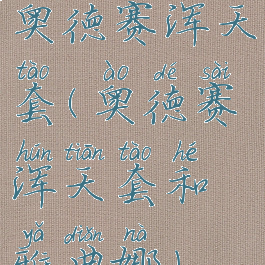 奥德赛浑天
tào ào dé sài
套(奥德赛
hún tiān tào hé
浑天套和
yǎ diǎn nà
雅典娜)